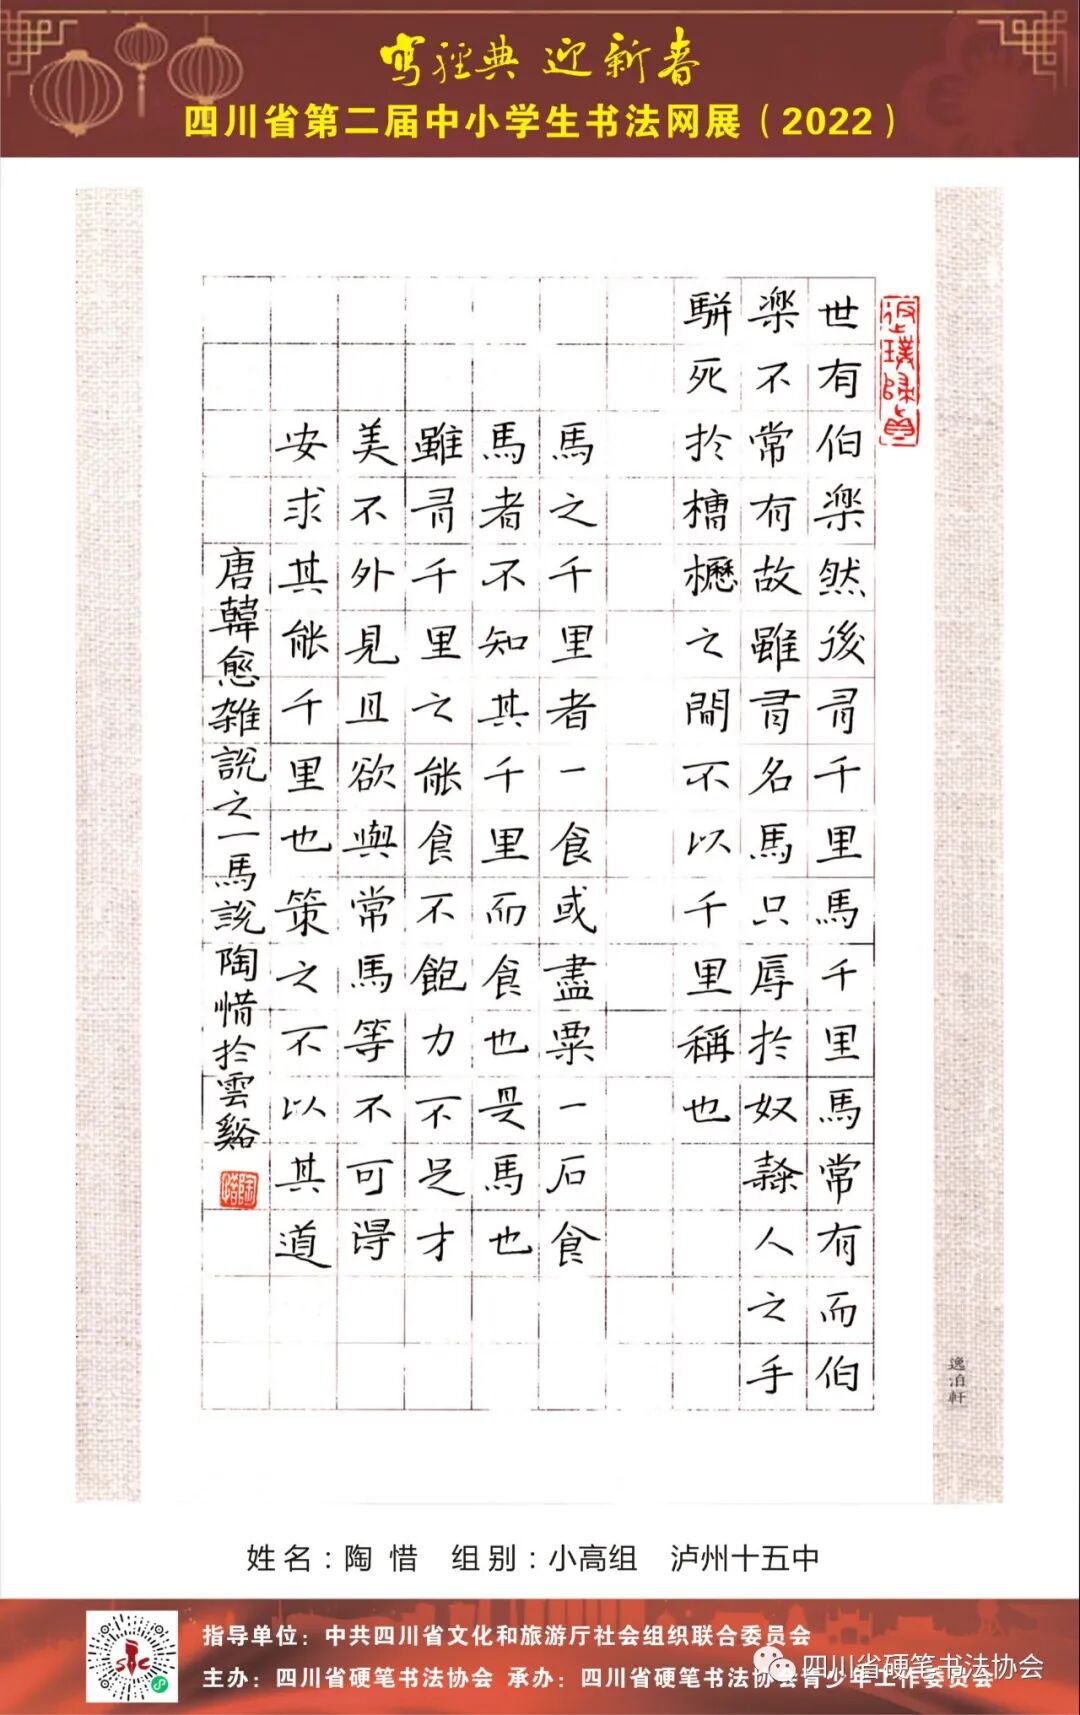 寫經典 迎新春
四川省第二届中小学生书法网展（2022）
世有伯樂然後有千里馬千里馬常有而伯
樂不常有故雖有名馬只辱於奴隸人之手
駢死於槽櫪之間不以千里稱也
馬之千里者一食或盡粟一石食
馬者不知其千里而食也是馬也
雖有千里之能食不飽力不足才
美不外見且欲與常馬等不可得
安求其能千里也策之不以其道
唐韓愈雜說之一馬說陶惜於雲谿
陶惜
逸泊軒
姓名：陶 惜 组别：小高组 泸州十五中
指导单位：中共四川省文化和旅游厅社会组织联合委员会
主办：四川省硬笔书法协会 承办：四川省硬笔书法协会青少年工作委员会
四川省硬笔书法协会